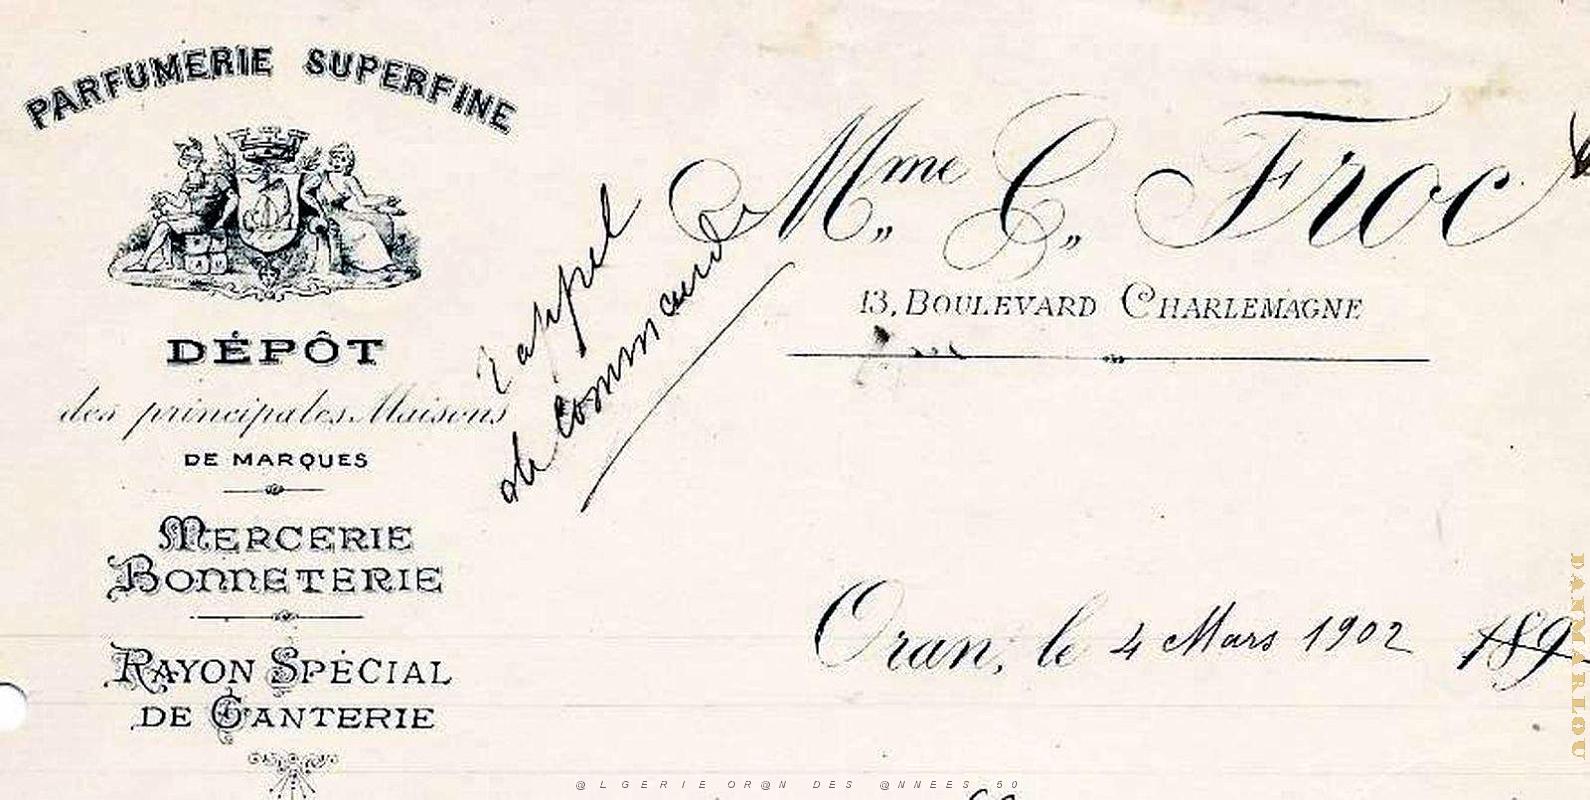 PARFUMERIE SUPERFINE
DÉPÔT
des principales Maisons
DE MARQUES
MERCERIE
BONNETERIE
RAYON SPÉCIAL
DE GANTERIE
rappel
de commande
Mme C. Froc
13, BOULEVARD CHARLEMAGNE
Oran, le 4 Mars 1902 189
DANMARLOU
@LGERIE OR@N DES @NNEES 50